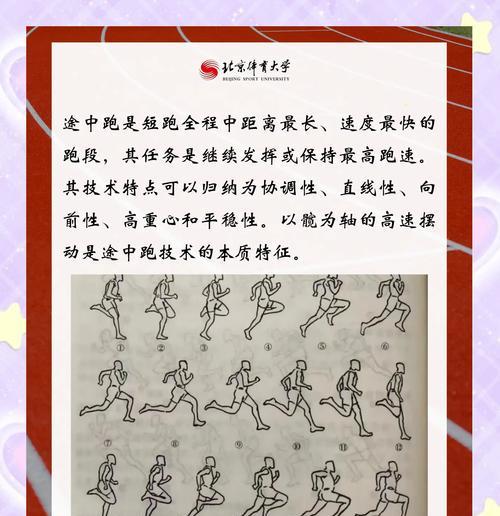 北京体育大学
BEIJING SPORT UNIVERSITY
途中跑是短跑全程中距离最长、速度最快的
跑段，其任务是继续发挥或保持最高跑速。
其技术特点可以归纳为协调性、直线性、向
前性、高重心和平稳性。以髋为轴的高速摆
动是途中跑技术的本质特征。
① ② ③ ④ ⑤ ⑥
⑦ ⑧ ⑨ ⑩ ⑪ ⑫